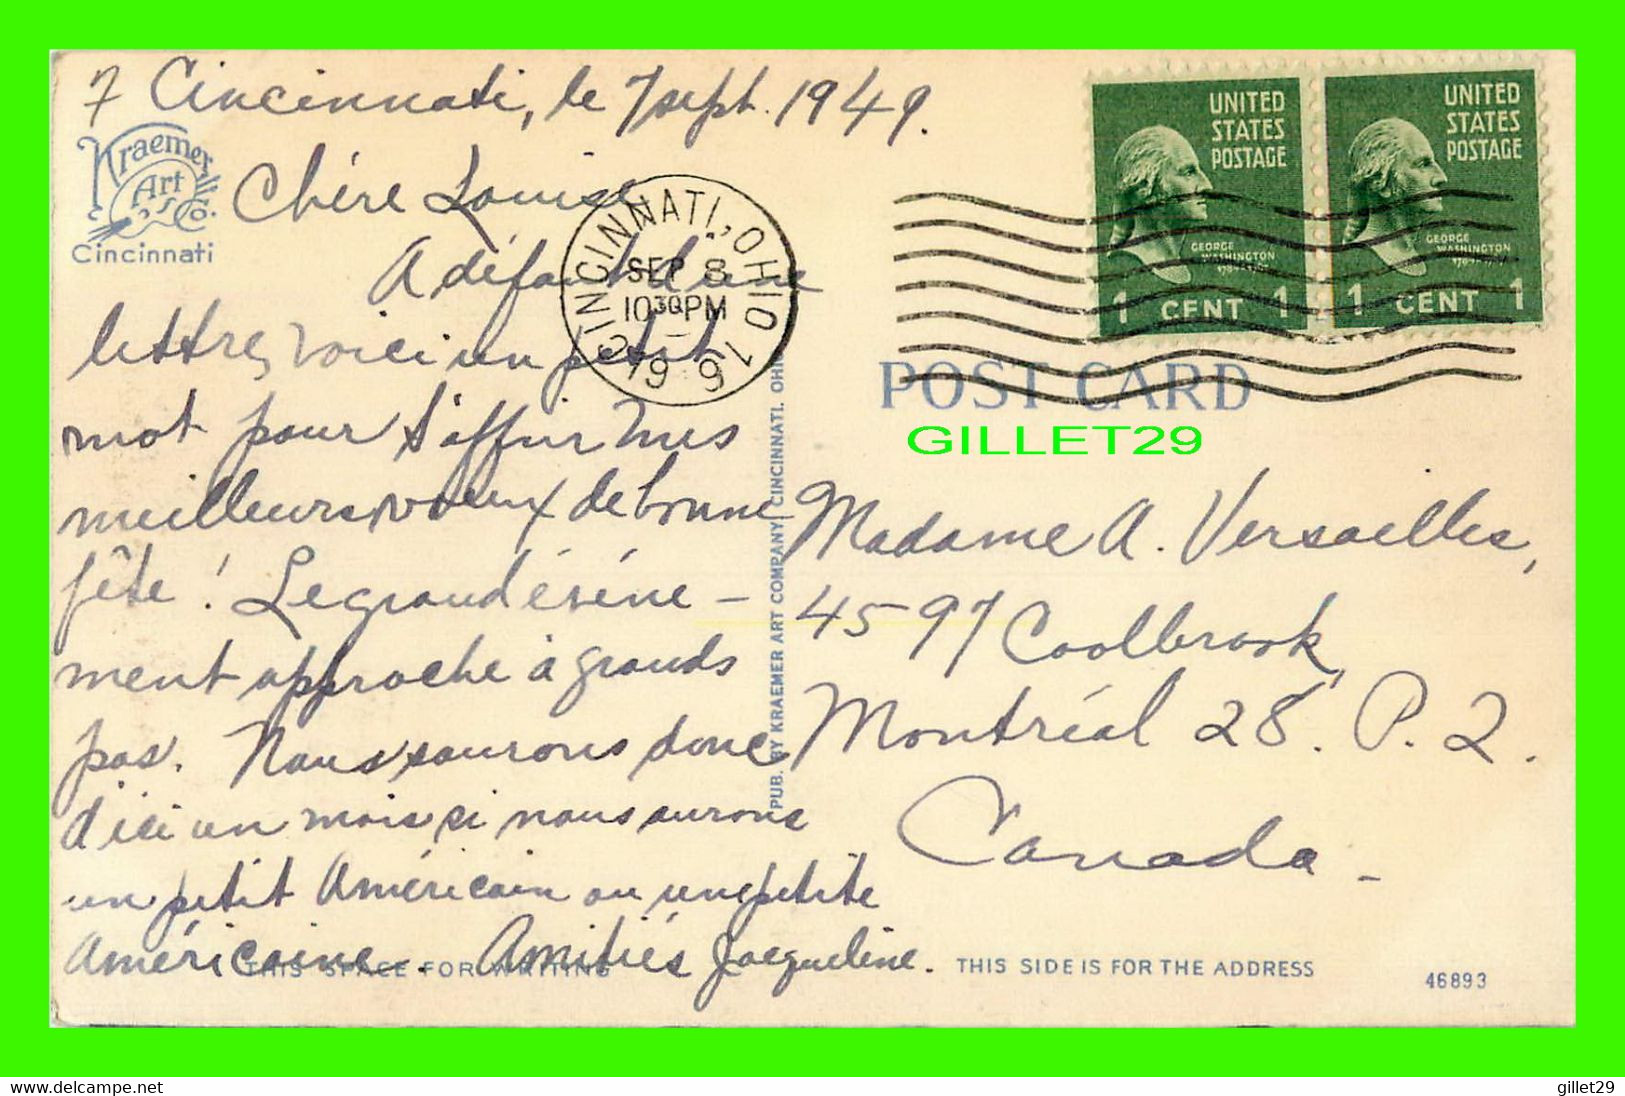 7 Cincinnati, le 7 sept. 1949.
Kraemer
Art
Co.
Cincinnati
Chère Louise
A défaut d'une
lettre, voici un petit
mot pour t'offrir mes
meilleurs voeux de bonne
fête! Le grand événe-
ment approche à grands
pas. Nous saurons donc
d'ici un mois si nous aurons
un petit Américain ou une petite
Américaine. Amitiés Jacqueline.
THIS SPACE FOR WRITING
CINCINNATI, OHIO 1
SEP 8
10 30 PM
1949
PUB. BY KRAEMER ART COMPANY, CINCINNATI, OHIO
UNITED
STATES
POSTAGE
GEORGE
WASHINGTON
1 CENT 1
UNITED
STATES
POSTAGE
GEORGE
WASHINGTON
1 CENT 1
POST CARD
GILLET29
Madame A. Versailles,
4597 Coolbrook,
Montréal 28. P. 2.
Canada -
THIS SIDE IS FOR THE ADDRESS
46893
www.delcampe.net
gillet29